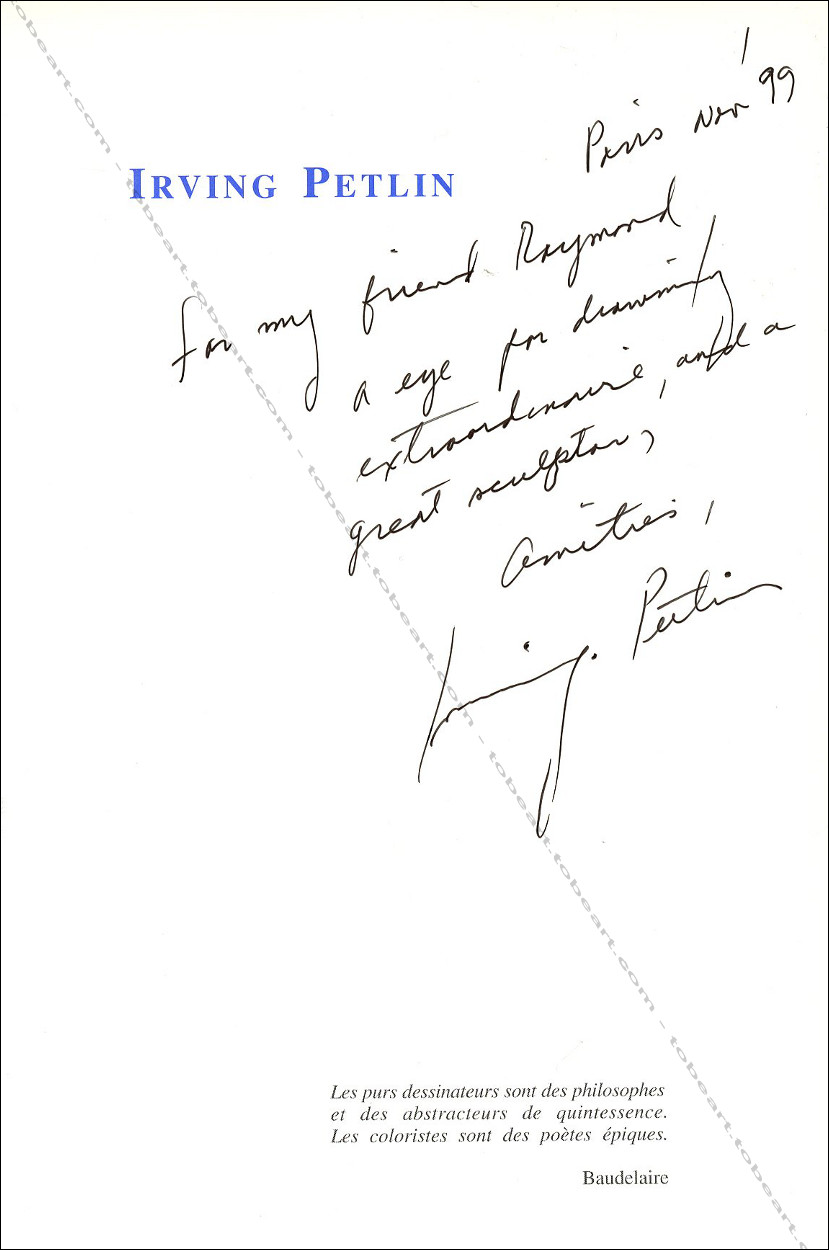 Paris Nov '99
IRVING PETLIN
for my friend Raymond
a eye for drawing
extraordinaire, and a
great sculptor,
Amitiés,
Irving. Petlin
Les purs dessinateurs sont des philosophes
et des abstracteurs de quintessence.
Les coloristes sont des poètes épiques.
Baudelaire
tobeart.com - tobeart.com - tobeart.com - tobeart.com - tobeart.com - tobeart.com - tobeart.com - tobeart.com